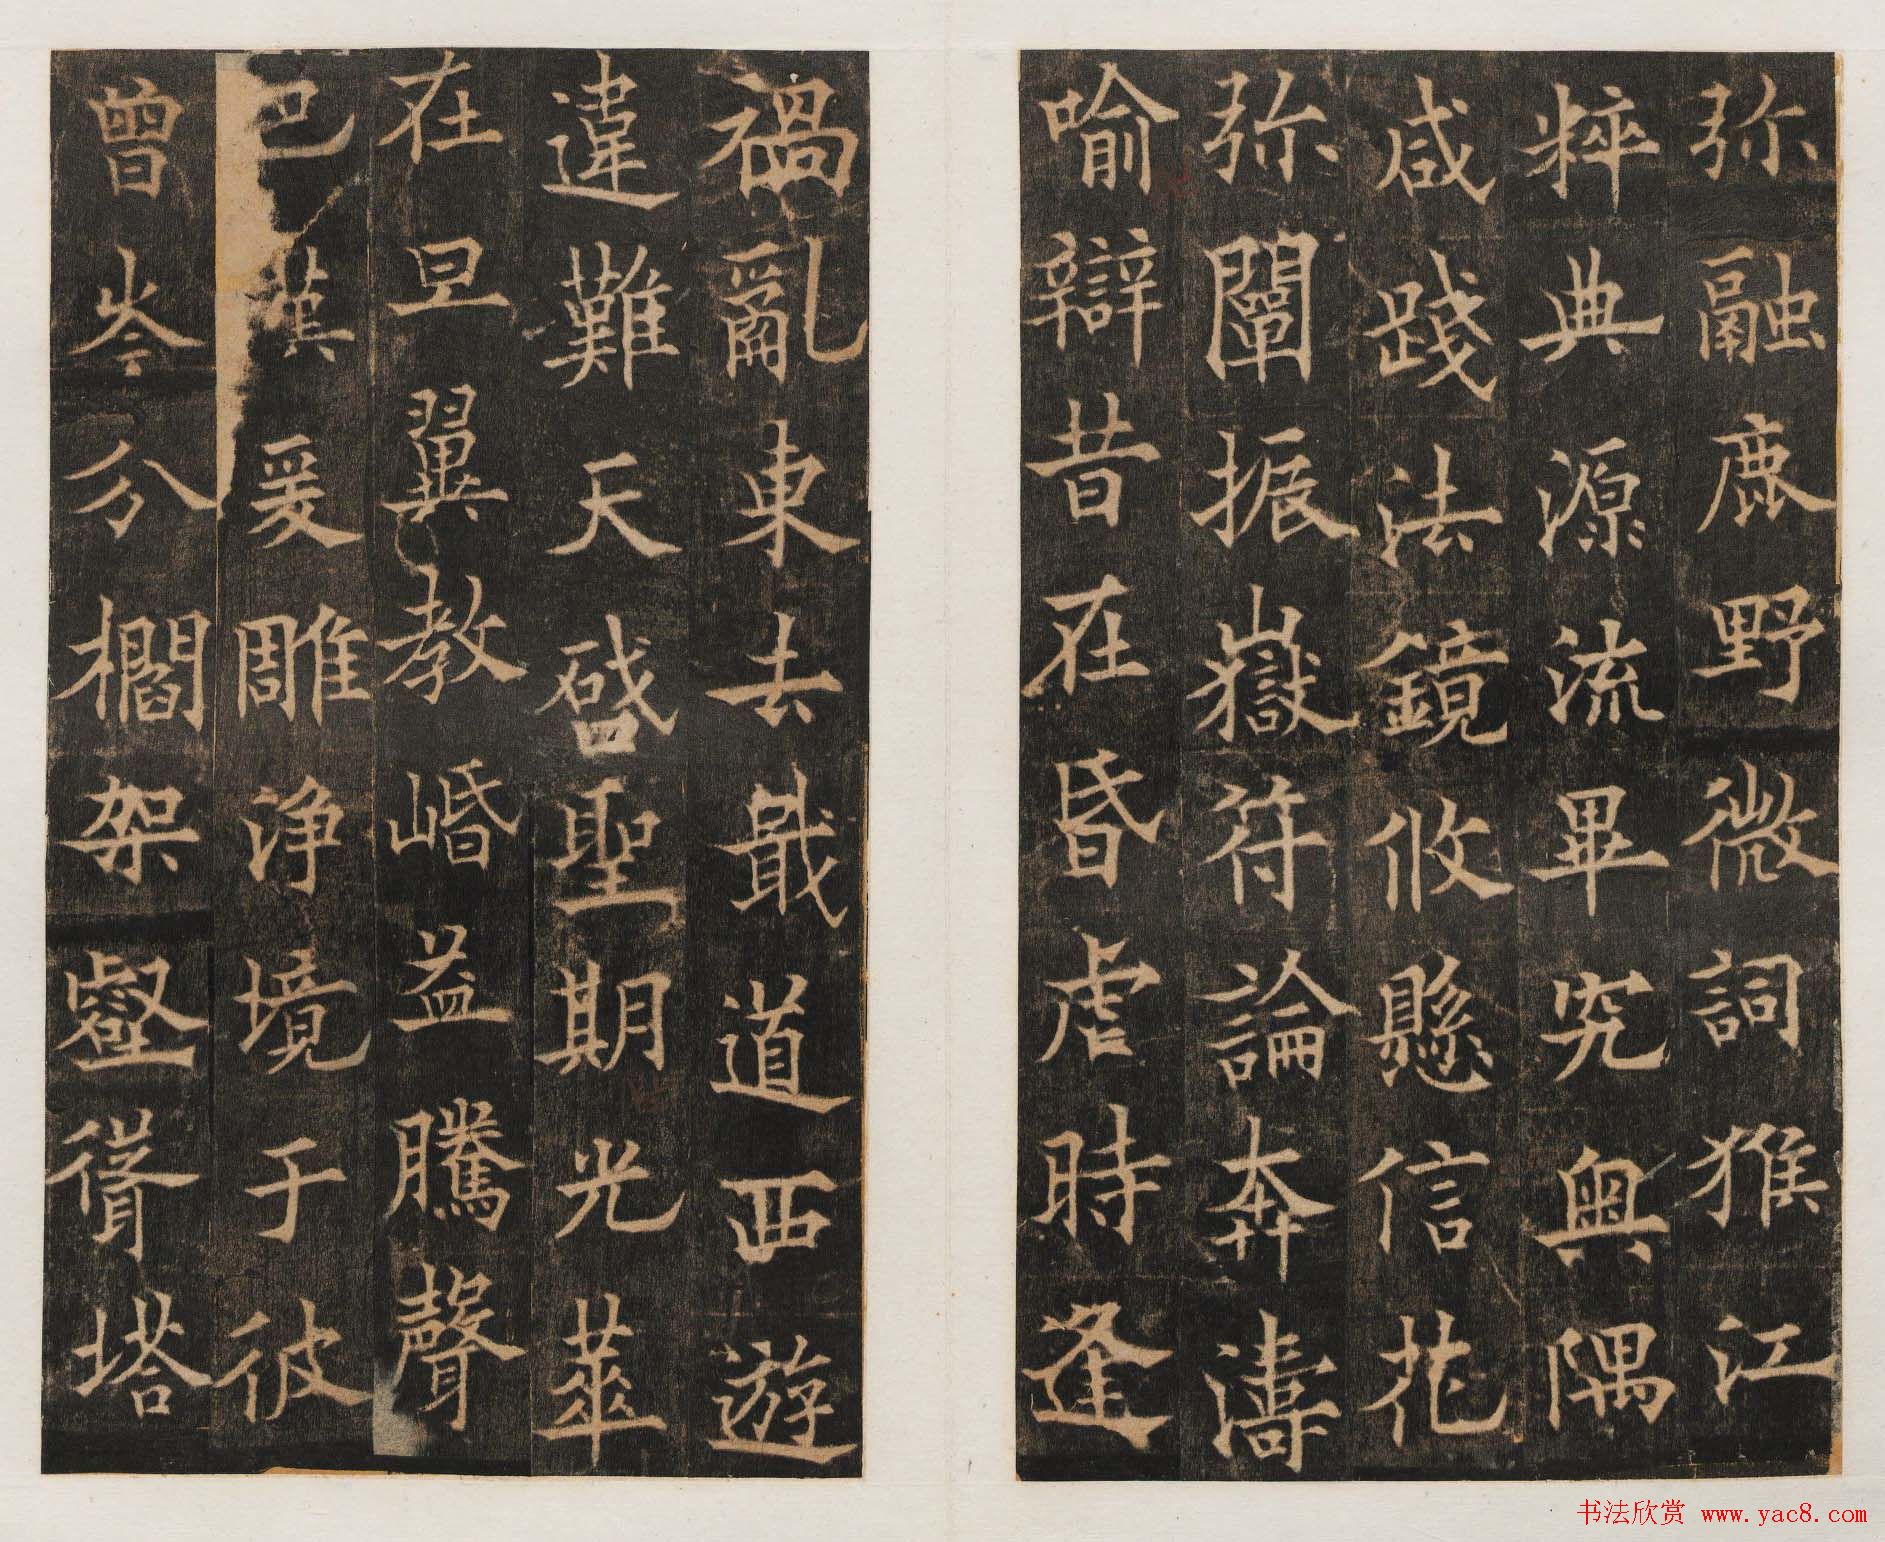 弥融鹿野微詞猴江
粹典源流畢究奥隅
咸踐法鏡攸懸信花
弥闡振嶽符論奔濤
喻辯昔在昏虐時逢
禍亂東去戢道西遊
違難天啓聖期光華
在旦翼教崏益騰聲
巴漢爰雕浄境于彼
曾岑分櫩架壑聳塔
书法欣赏 www.yac8.com